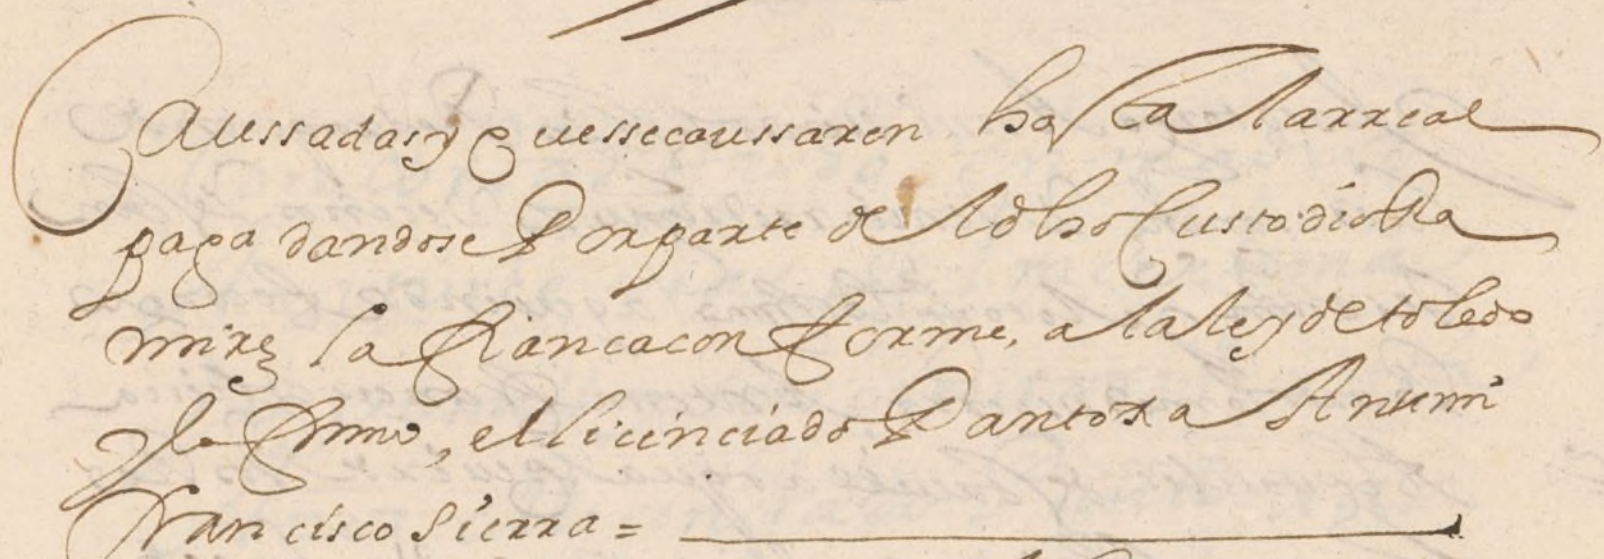 Caussadas y que sse caussaren hasta la rreal
paga dandose Por parte de el dho Custodio Ra
mirez la fianca conforme, a la ley de toledo
y lo firmo, el licenciado Pantoxa Antemi
Francisco Sierra =